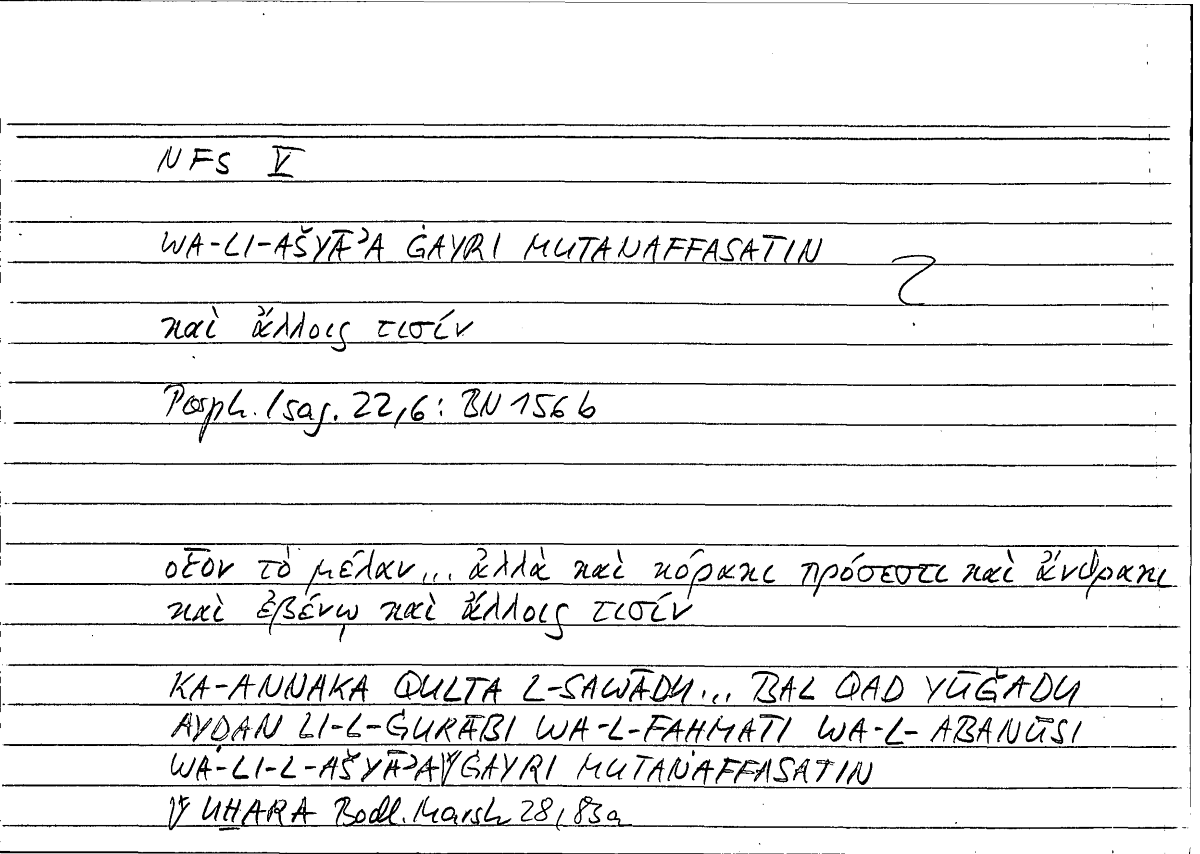 NFS V
WA-LI-AŠYĀʾA ĠAYRI MUTANAFFASATIN ?
καὶ ἄλλοις τισίν
Porph. Isag. 22,6: BN 156 b
οἷον τὸ μέλαν... ἀλλὰ καὶ κόρακι πρόσεστι καὶ ἄνθρακι
καὶ ἐβένῳ καὶ ἄλλοις τισίν
KA-ANNAKA QULTA L-SAWĀDU... BAL QAD YŪĞADU
AYḌAN LI-L-ĠURĀBI WA-L-FAḤMATI WA-L-ABANŪSI
WA-LI-L-AŠYĀʾA ĠAYRI MUTANAFFASATIN
UḪARA Bodl. Marsh 28, 83a